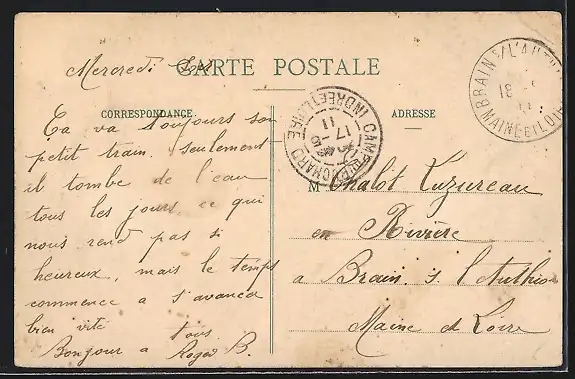 Mercredi
CARTE POSTALE
CORRESPONDANCE
ADRESSE
Ça va toujours son
petit train. seulement
il tombe de l'eau
tous les jours, ce qui
nous rend pas si
heureux, mais le temps
commence a s'avancer
bien vite
Bonjour a tous
Roger B.
M Chalot Luzureau
en Rivière
a Brain s. l'Authion
Maine et Loire
CAMP DU RUCHARD
INDRE ET LOIRE
17 - 5
11
BRAIN S/L'AUTHION
MAINE ET LOIRE
18
11